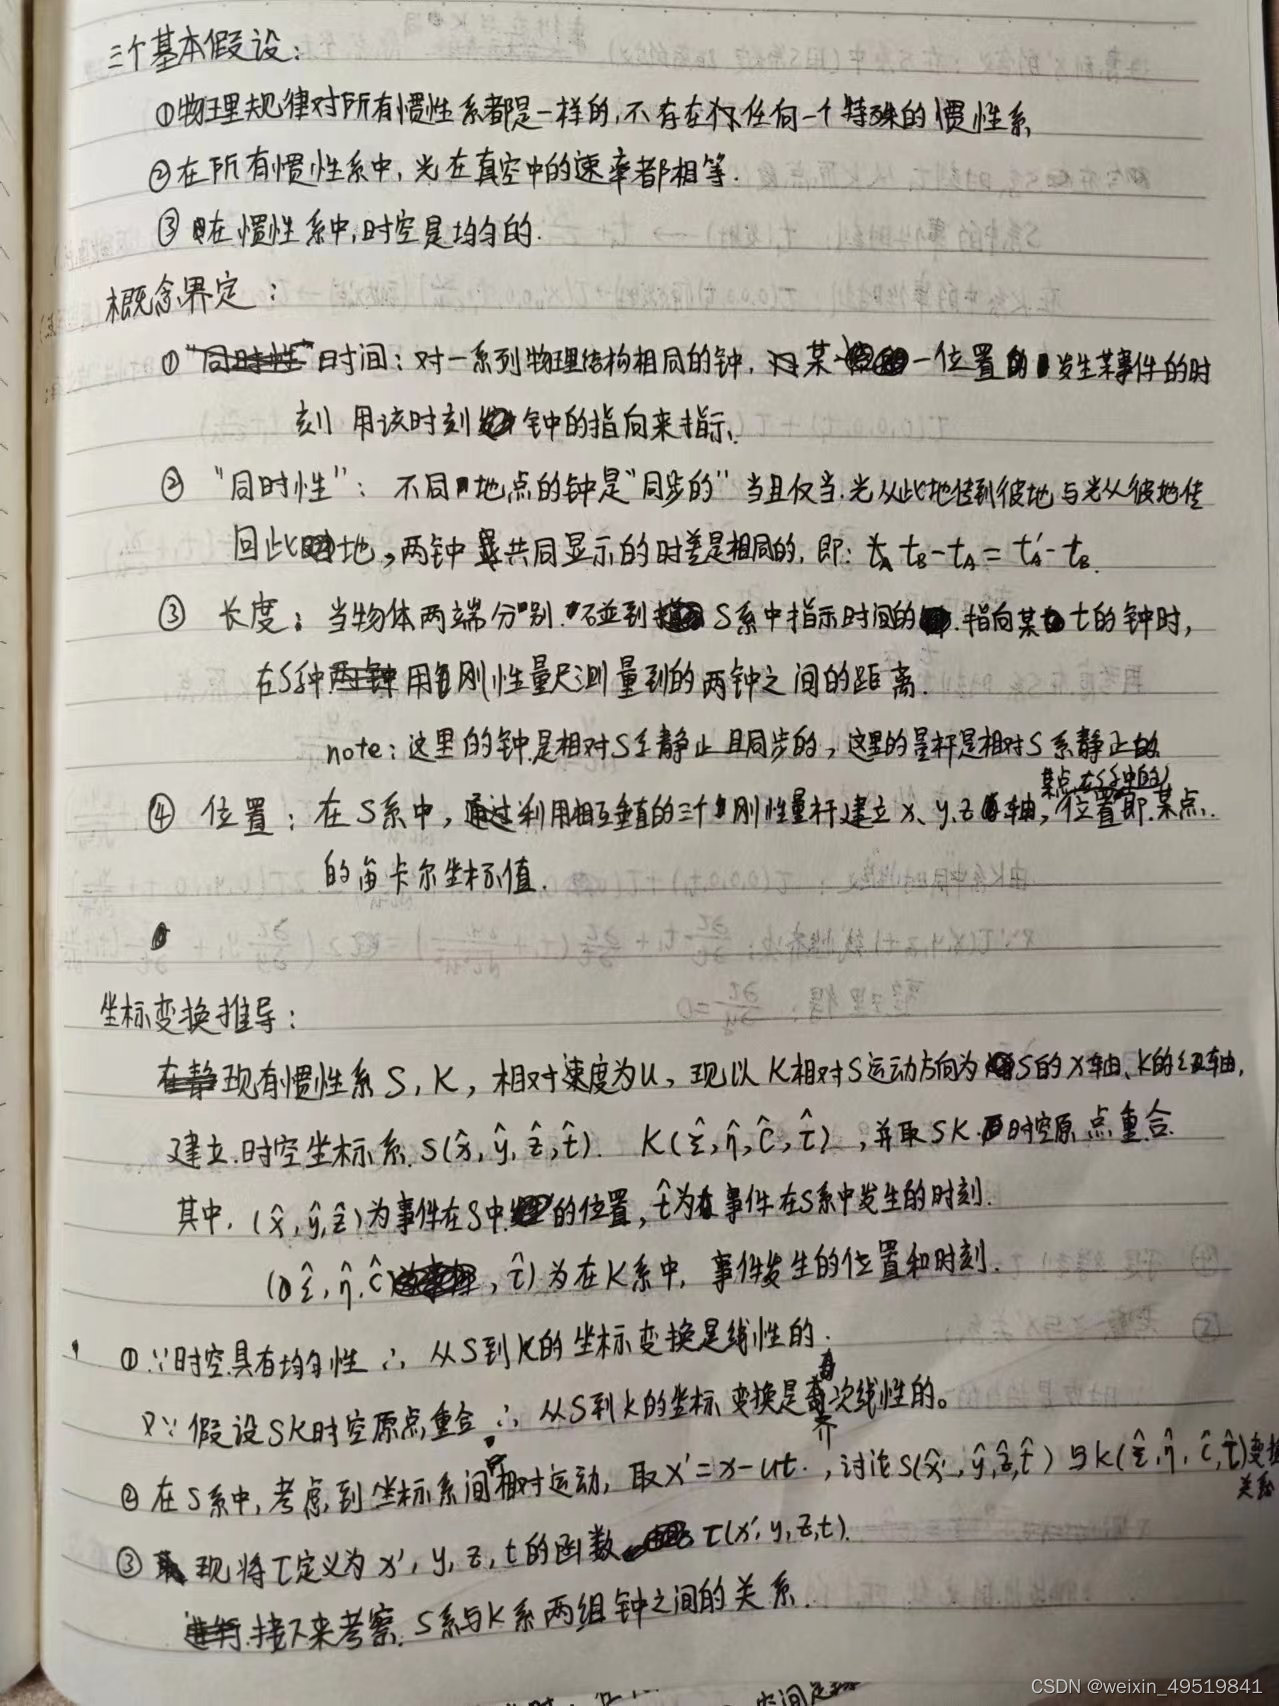 三个基本假设：
①物理规律对所有惯性系都是一样的，不存在任何一个特殊的惯性系
②在所有惯性系中，光在真空中的速率都相等.
③在惯性系中，时空是均匀的.
概念界定：
①时间：对一系列物理结构相同的钟，某一位置发生某事件的时
刻 用该时刻钟的指向来指示.
②“同时性”：不同地点的钟是“同步的”当且仅当.光从此地传到彼地与光从彼地传
回此地，两钟共同显示的时差是相同的，即：tB-tA=t'A-tB.
③ 长度：当物体两端分别.碰到S系中指示时间的.指向某t的钟时，
在S系中用刚性量尺测量到的两钟之间的距离.
note：这里的钟是相对S系静止且同步的，这里的量杆是相对S系静止的
某点在S系中的
④ 位置：在S系中，通过利用相互垂直的三个刚性量杆建立x、y、z轴，位置即.某点.
的笛卡尔坐标值.
坐标变换推导：
现有惯性系S，K，相对速度为u，现以K相对S运动方向为S的x轴、K的ξ轴，
建立.时空坐标系.S(x̂,ŷ,ẑ,t̂). K(ξ̂,η̂,ζ̂,τ̂)，并取SK.时空原点重合.
其中.(x̂,ŷ,ẑ)为事件在S中的位置，t̂为事件在S系中发生的时刻.
(ξ̂,η̂,ζ̂，τ̂)为在K系中，事件发生的位置和时刻.
①∵时空具有均匀性 ∴ 从S到K的坐标变换是线性的.
又∵假设SK时空原点重合 ∴ 从S到K的坐标变换是齐次线性的。
②在S系中，考虑到坐标系间相对运动，取x'=x-ut.，讨论S(x̂',ŷ,ẑ,t̂)与K(ξ̂,η̂,ζ̂,τ̂)变换
关系
③现将τ定义为x',y,z,t的函数 τ(x',y,z,t).
接下来考察.S系与K系两组钟之间的关系.
CSDN @weixin_49519841